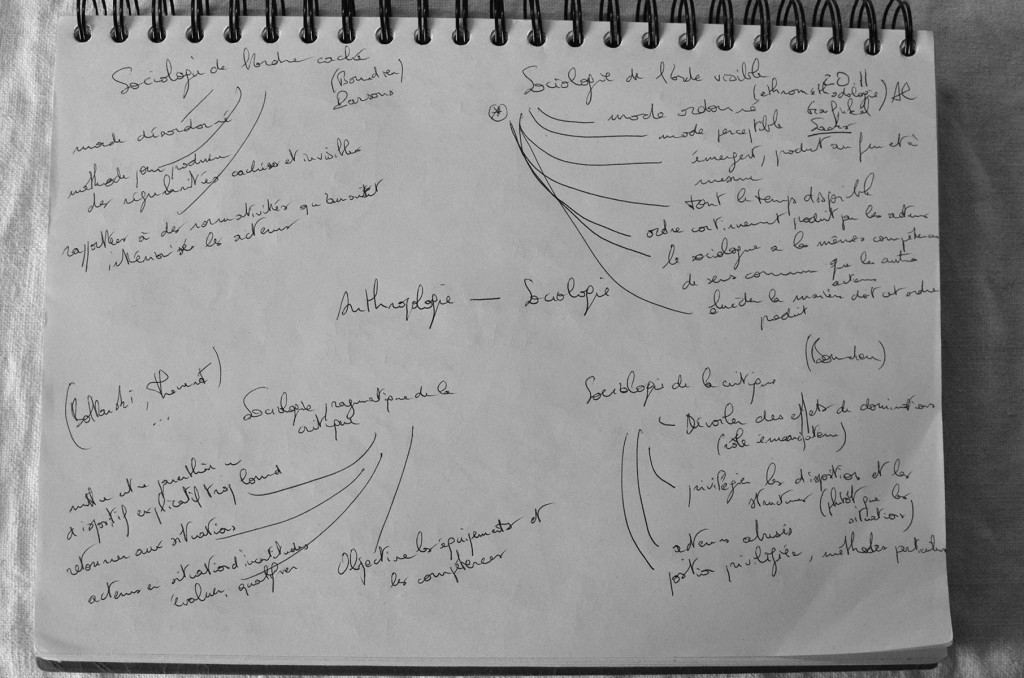 Sociologie de l'ordre caché
(Bourdieu)
Parsons
mode désordonné
méthode pour produire
des régularités cachées et invisibles
rapportées à des normativités qu'auraient
intériorisées les acteurs
Sociologie de l'ordre visible
2011
(ethnométhodologie) AR
Garfinkel
Sacks
mode ordonné
mode perceptible
émergent, produit au fur et à
mesure
tout le temps disponible
ordre continument produit par les acteurs
le sociologue a les mêmes compétences
de sens commun que les autres
acteurs
élucider la manière dont cet ordre
produit
Anthropologie — Sociologie
(Boltanski, Thévenot)
...
Sociologie pragmatique de la
critique
mettre entre parenthèses un
dispositif explicatif trop lourd
retourner aux situations
acteurs en situation d'incertitudes
évaluer, qualifier
Objectiver les équipements et
les compétences
(Bourdieu)
Sociologie de la critique
Dévoiler des effets de dominations
(rôle émancipateur)
privilégie les dispositions et les
structures (plutôt que les
situations)
acteurs abusés
position privilégiée, méthodes particulières